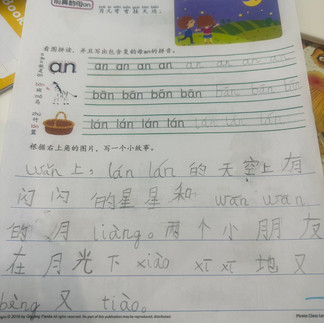 前鼻韵母an
看图拼读，并且写出包含复韵母an的拼音。
an an an an an an an an an
bān bān bān bān bān bān bān
lán lán lán lán lán lán lán
根据右上角的图片，写一个小故事。
wǎn 上，lán lán 的天空上有
闪闪的星星和 wan wan
的月 liàng。两个小朋友
在月光下 xiào xī xī 地又
bèng 又 tiào。